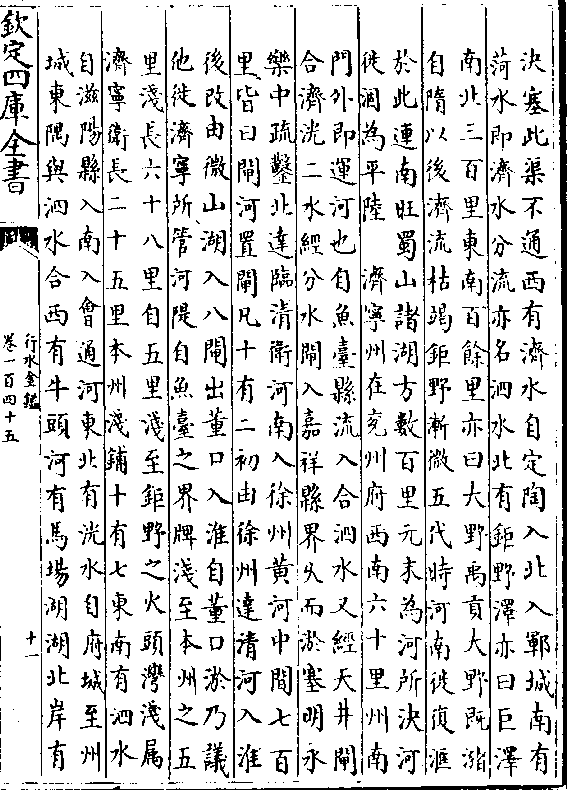 決塞此渠不通西有濟水自定陶入北入鄆城南有
菏水即濟水分流亦名泗水北有鉅野澤亦曰巨澤
南北三百里東南百餘里亦曰大野禹貢大野既瀦
自隋以後濟流枯竭鉅野漸微五代時河南徙復滙
於此連南旺蜀山諸湖方數百里元末為河所決河
徙涸為平陸　濟寧州在兖州府西南六十里州南
門外即運河也自魚臺縣流入合泗水又經天井閘
合濟洸二水經分水閘入嘉祥縣界久而淤塞明永
樂中疏鑿北達臨清衛河南入徐州黄河中間七百
里皆曰閘河置閘凡十有二初由徐州達清河入淮
後改由微山湖入八閘出董口入淮自董口淤乃議
他徙濟寧所管河隄自魚臺之界牌淺至本州之五
里淺長六十八里自五里淺至鉅野之火頭灣淺属
濟寧衛長二十五里本州淺鋪十有七東南有泗水
自滋陽縣入南入會通河東北有洸水自府城至州
城東隅與泗水合西有牛頭河有馬場湖湖北岸有
欽定四庫全書
行水金鑑
卷一百四十五
十一